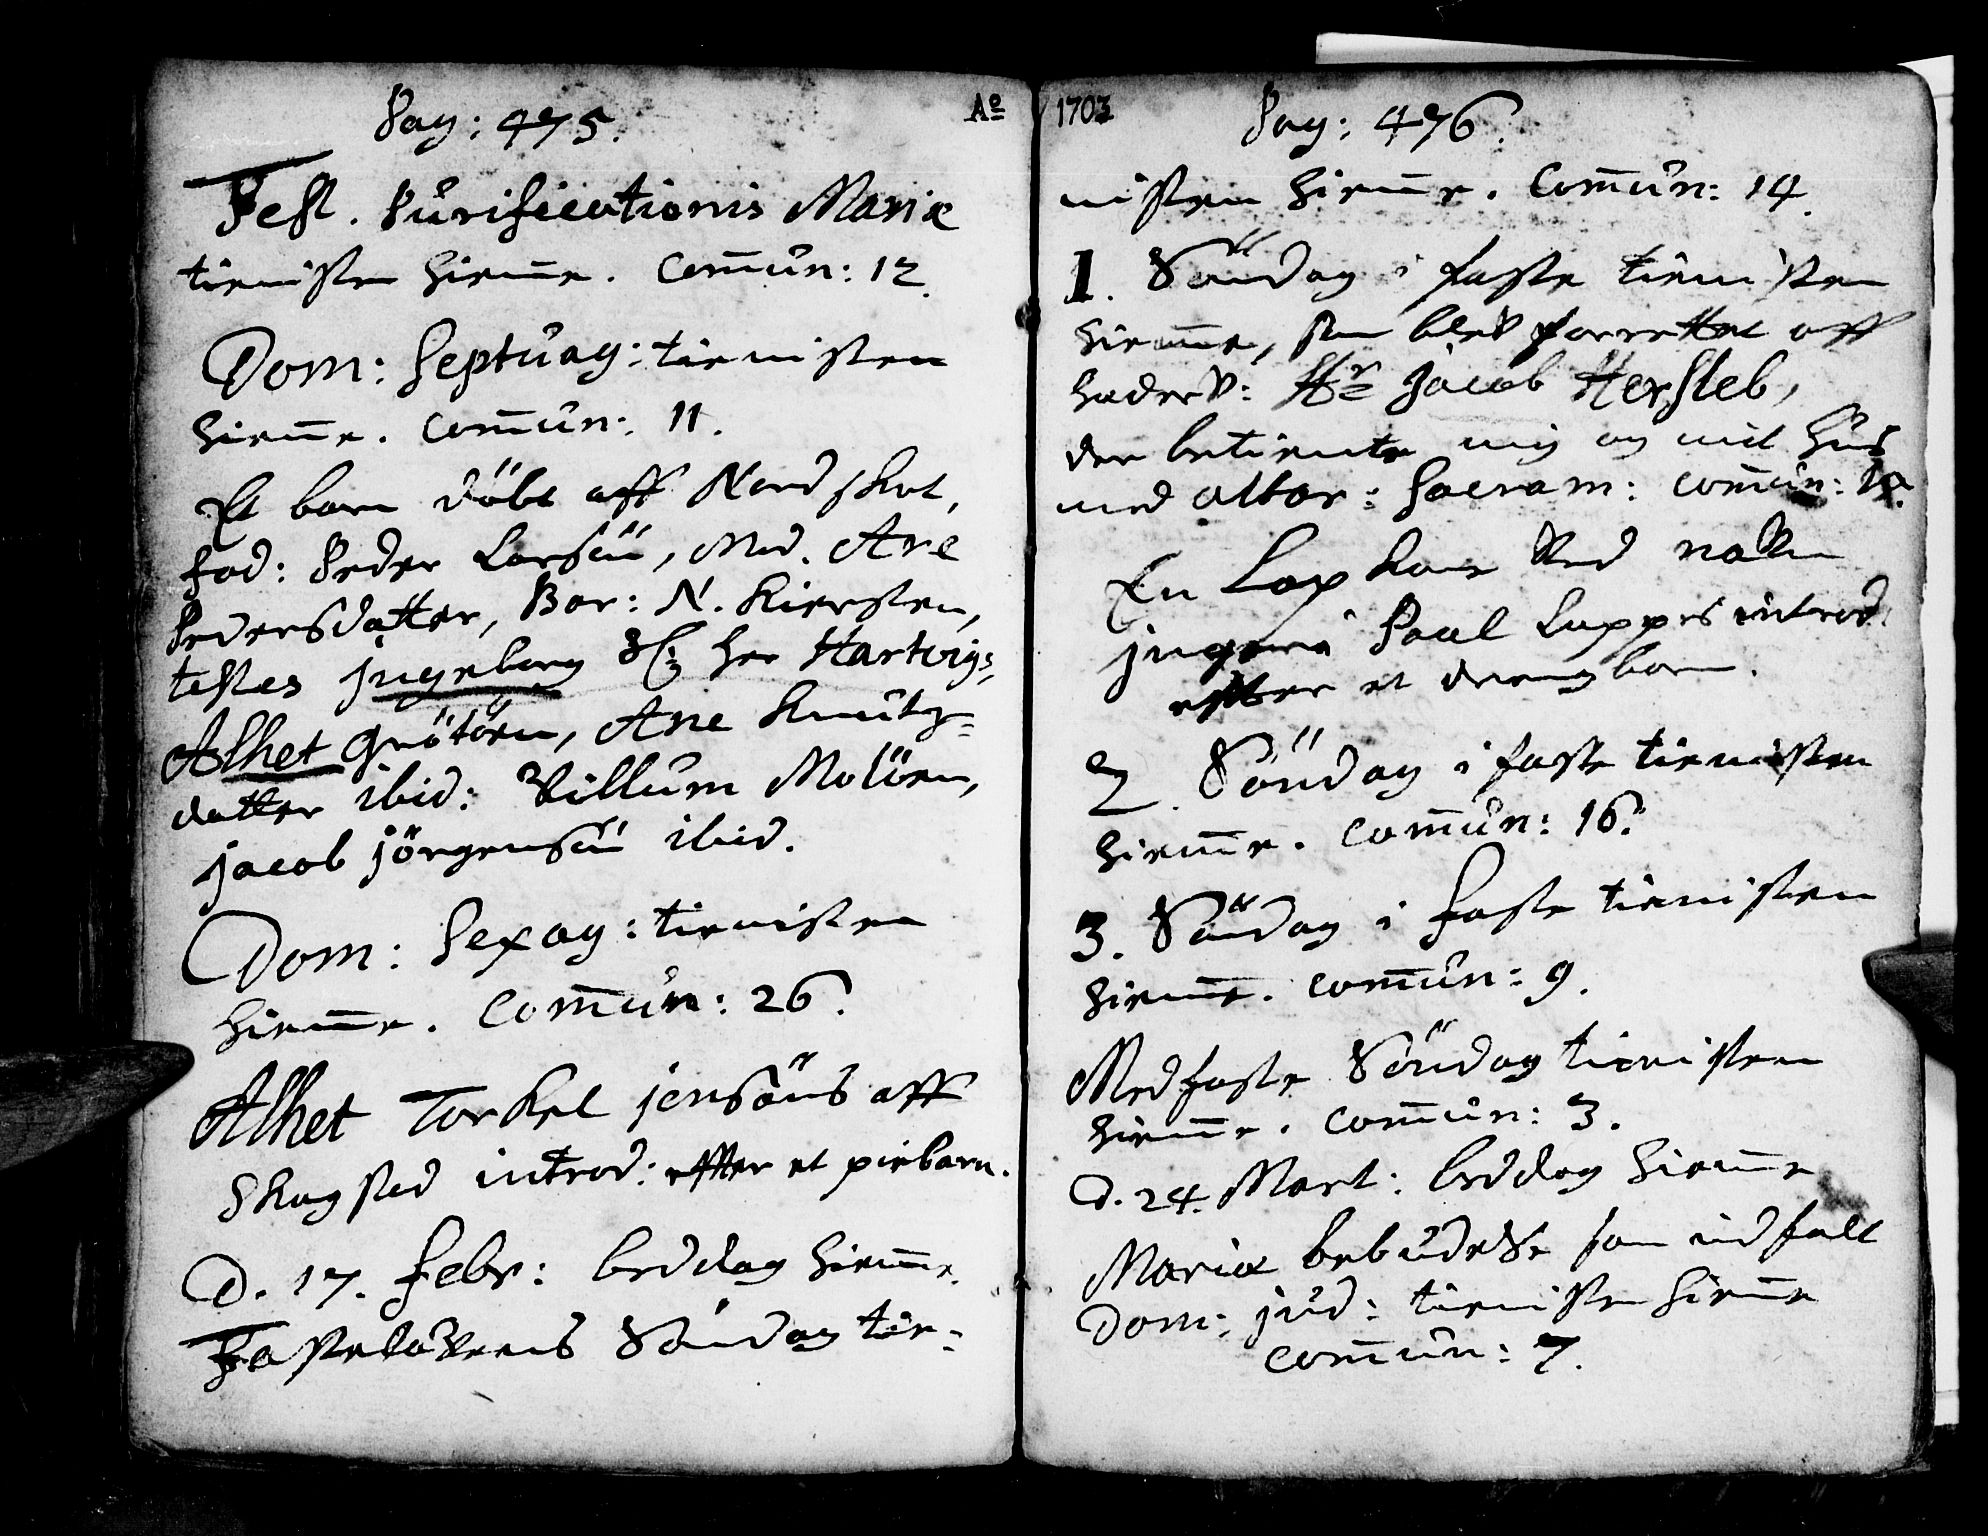 Pag: 475.
Fest. Purificationis Mariæ
tienisten hiem̄e. Com̄un: 12.
Dom: Septuag: tienisten
hiem̄e. Com̄un: 11.
Et barn döbt aff Nordskot,
fad: Peder Larsön, Mod. Ane
Pedersdatter, Bar: N. Kiersten,
testes Jngeborg Sl: her Hartvigs,
Alhet Grötöen, Ane Knuts=
datter ibid: Villum Molöen,
Jacob Jörgensön ibid.
Dom: Sexag: tienisten
hiem̄e. Com̄un: 26.
Alhet Torkel Jensöns aff
Skagsted introd: effter et piebarn.
D. 17. Febr: beddag hiem̄e.
Fastelavens Söndag tie=
Aº 1703
Pag: 476.
nisten hiem̄e. Com̄un: 14.
1. Söndag i faste tienisten
hiemme, som blev forrettet aff
hæderv: Hr Jacob Hersleb,
der betiente mig og mit huus
med Altar: Sacram: Com̄un:
En Lap kone ved
Paul Lappes introd:
effter et drengbarn.
2. Söndag i faste tienisten
hiem̄e. Com̄un: 16.
3. Söndag i faste tienisten
hiem̄e. Com̄un: 9.
Medfaste Söndag tienisten
hiem̄e. Com̄un: 3.
D. 24. Mart: beddag hiem̄e
Mariæ bebudelse som indfalt
Dom: Jud: tienisten hiem̄e
Com̄un: 7.